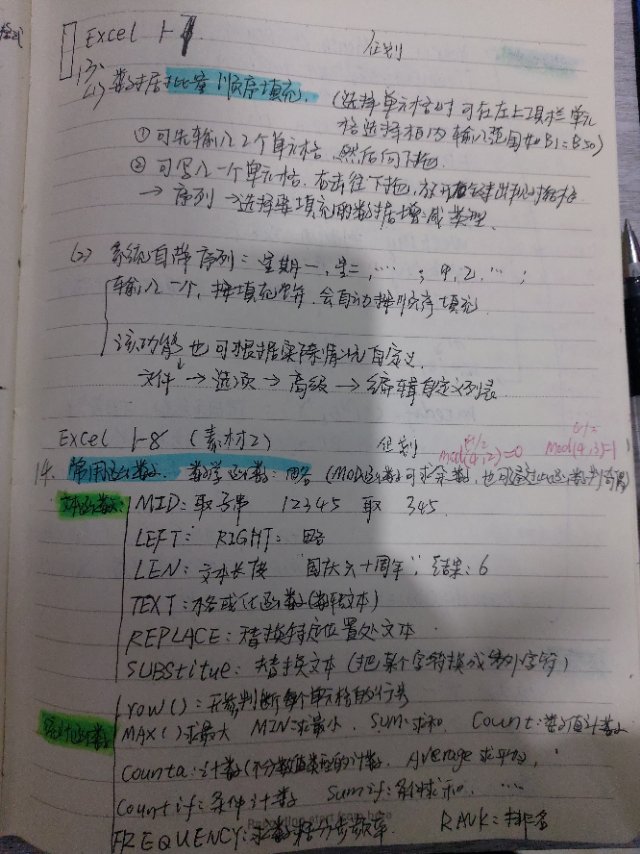 Excel 1-7
13、
(1) 数据批量顺序填充. (选择单元格时可在左上工具栏单元
格选择框内输入范围如B1:B50)
①可先输入2个单元格,然后向下拖.
②可写入一个单元格,右击往下拖,放开
→序列→选择要填充的数据增减类型.
(2) 系统自带序列:星期一,星二,……;甲,乙,…;
输入一个,按填充,会自动按顺序填充.
该功能也可根据实际情况自定义.
文件→选项→高级→编辑自定义列表
Excel 1-8 (素材2) mod(4,2)=0 mod(4,3)=1
14. 常用函数: 数学函数:略 (MOD函数可求余数,也可通过此函数判奇偶)
文本函数: MID:取子串 12345 取 345.
LEFT: RIGHT: 略
LEN:文本长度 "国庆六十周年",结果:6
TEXT:格式化函数(数转文本)
REPLACE:替换特定位置处文本
SUBStitue:替换文本(把某个字符换成另外字符)
row():判断单元格的行号
统计函数 MAX()求最大 MIN:求最小. SUM:求和. Count:数值计数
Counta:计数(不分数值类型的计数. Average 求平均.
Countif:条件计数 Sumif:条件求和. …
FREQUENCY:求数据分布频率. RANK:排名